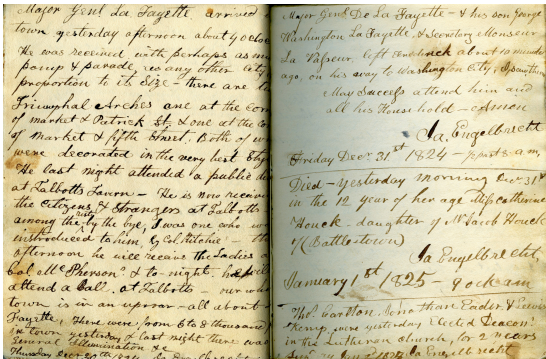 Major Genl La Fayette, arrived
town yesterday afternoon about 4 oCloc
He was received with perhaps as mu
pomp & parade, as any other City in
proportion to its Size – there are two
Triumphal Arches one at the Corn
of market & Patrick St. & one at the Co
of market & fifth Street. Both of w
were decorated in the very best Style
He last night attended a public di
at Talbotts Tavern – He is now receivin
the Citizens & Strangers at Talbotts
among the by the bye, I was one who w
introduced to him, by Col. Ritchie – th
afternoon he will receive the Ladies a
Col McPhersons & to-night he will
attend a ball at Talbotts – our whole
town is in an uproar – all about
Fayette, There were from 6 to 8 thousand
in town yesterday & last night there was
General Illumination &c
Thursday Decr 30th 1824
Major Genl De La Fayette – & his son George
Washington La Fayette & Secretary Monsieur
La Vasseur, left Frederick about 10 minutes
ago, on his way to Washington City,
May Success attend him and
all his House hold – amen
Ja. Engelbrecht
Friday Decr 31st 1824 – past 8 am,
Died – Yesterday morning Decr 31st
in the 12 year of her age Miss Catherine
Houck – daughter of Mr Jacob Houck
of (Battletown)
Ja Engelbrecht,
January 1st 1825 – 9 ock am
Thos. Carlton, Jonathan Eader, &
Kemp, were yesterday Elected Deacons
in the Lutheran church, for 2 years
Ja Engelbrecht